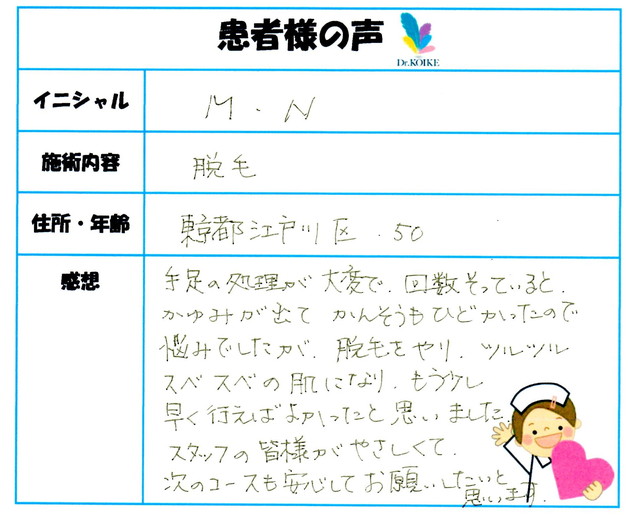 患者様の声
Dr.KOIKE
イニシャル
M・N
施術内容
脱毛
住所・年齢
東京都江戸川区・50
感想
手足の処理が大変で、回数そっていると、
かゆみが出て かんそうもひどかったので
悩みでしたが、脱毛をやり、ツルツル
スベスベの肌になり、もう少し
早く行えばよかったと思いました。
スタッフの皆様がやさしくて、
次のコースも安心してお願いしたいと
思います。